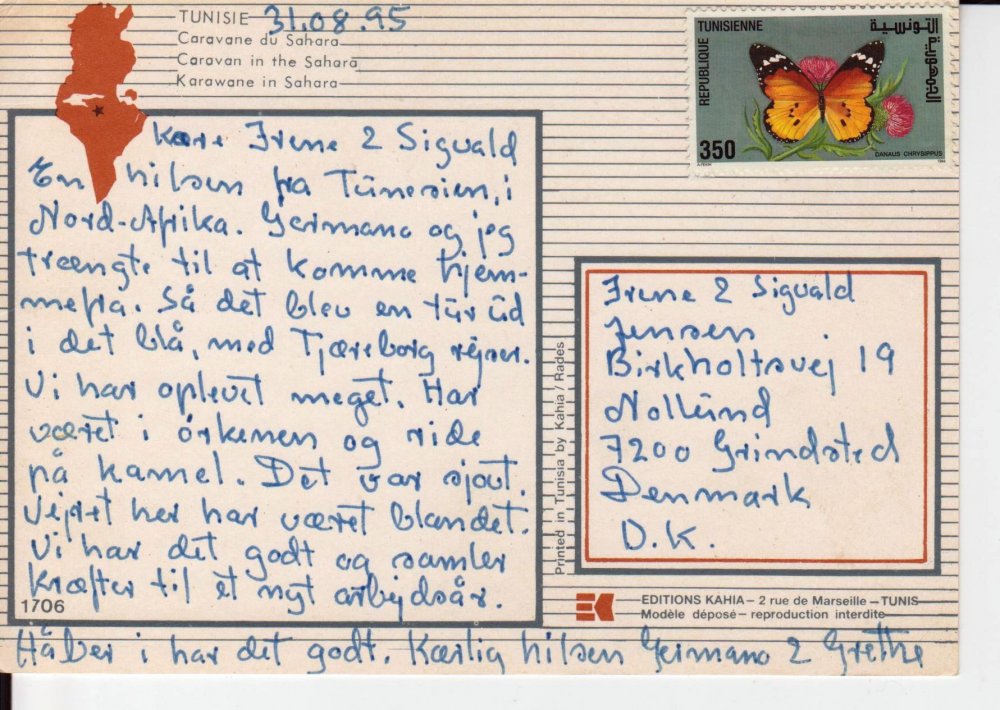 TUNISIE 31.08.95
Caravane du Sahara
Caravan in the Sahara
Karawane in Sahara
REPUBLIQUE TUNISIENNE
الجمهورية التونسية
350
DANAUS CHRYSIPPUS
Kære Irene & Sigvald
En hilsen fra Tunesien, i
Nord-Afrika. Germano og jeg
trængte til at komme hjem-
mefra. Så det blev en tur ud
i det blå, med Tjæreborg rejser.
Vi har oplevet meget. Har
været i ørkenen og ride
på kamel. Det var sjovt.
Vejret her har været blandet.
Vi har det godt og samler
kræfter til et nyt arbejdsår.
1706
Håber i har det godt. Kærlig hilsen Germano & Grethe
Printed in Tunisia by Kahia / Rades
Irene & Sigvald
Jensen
Birkholtsvej 19
Nollund
7200 Grindsted
Denmark
D.K.
EDITIONS KAHIA – 2 rue de Marseille – TUNIS
Modèle déposé – reproduction interdite